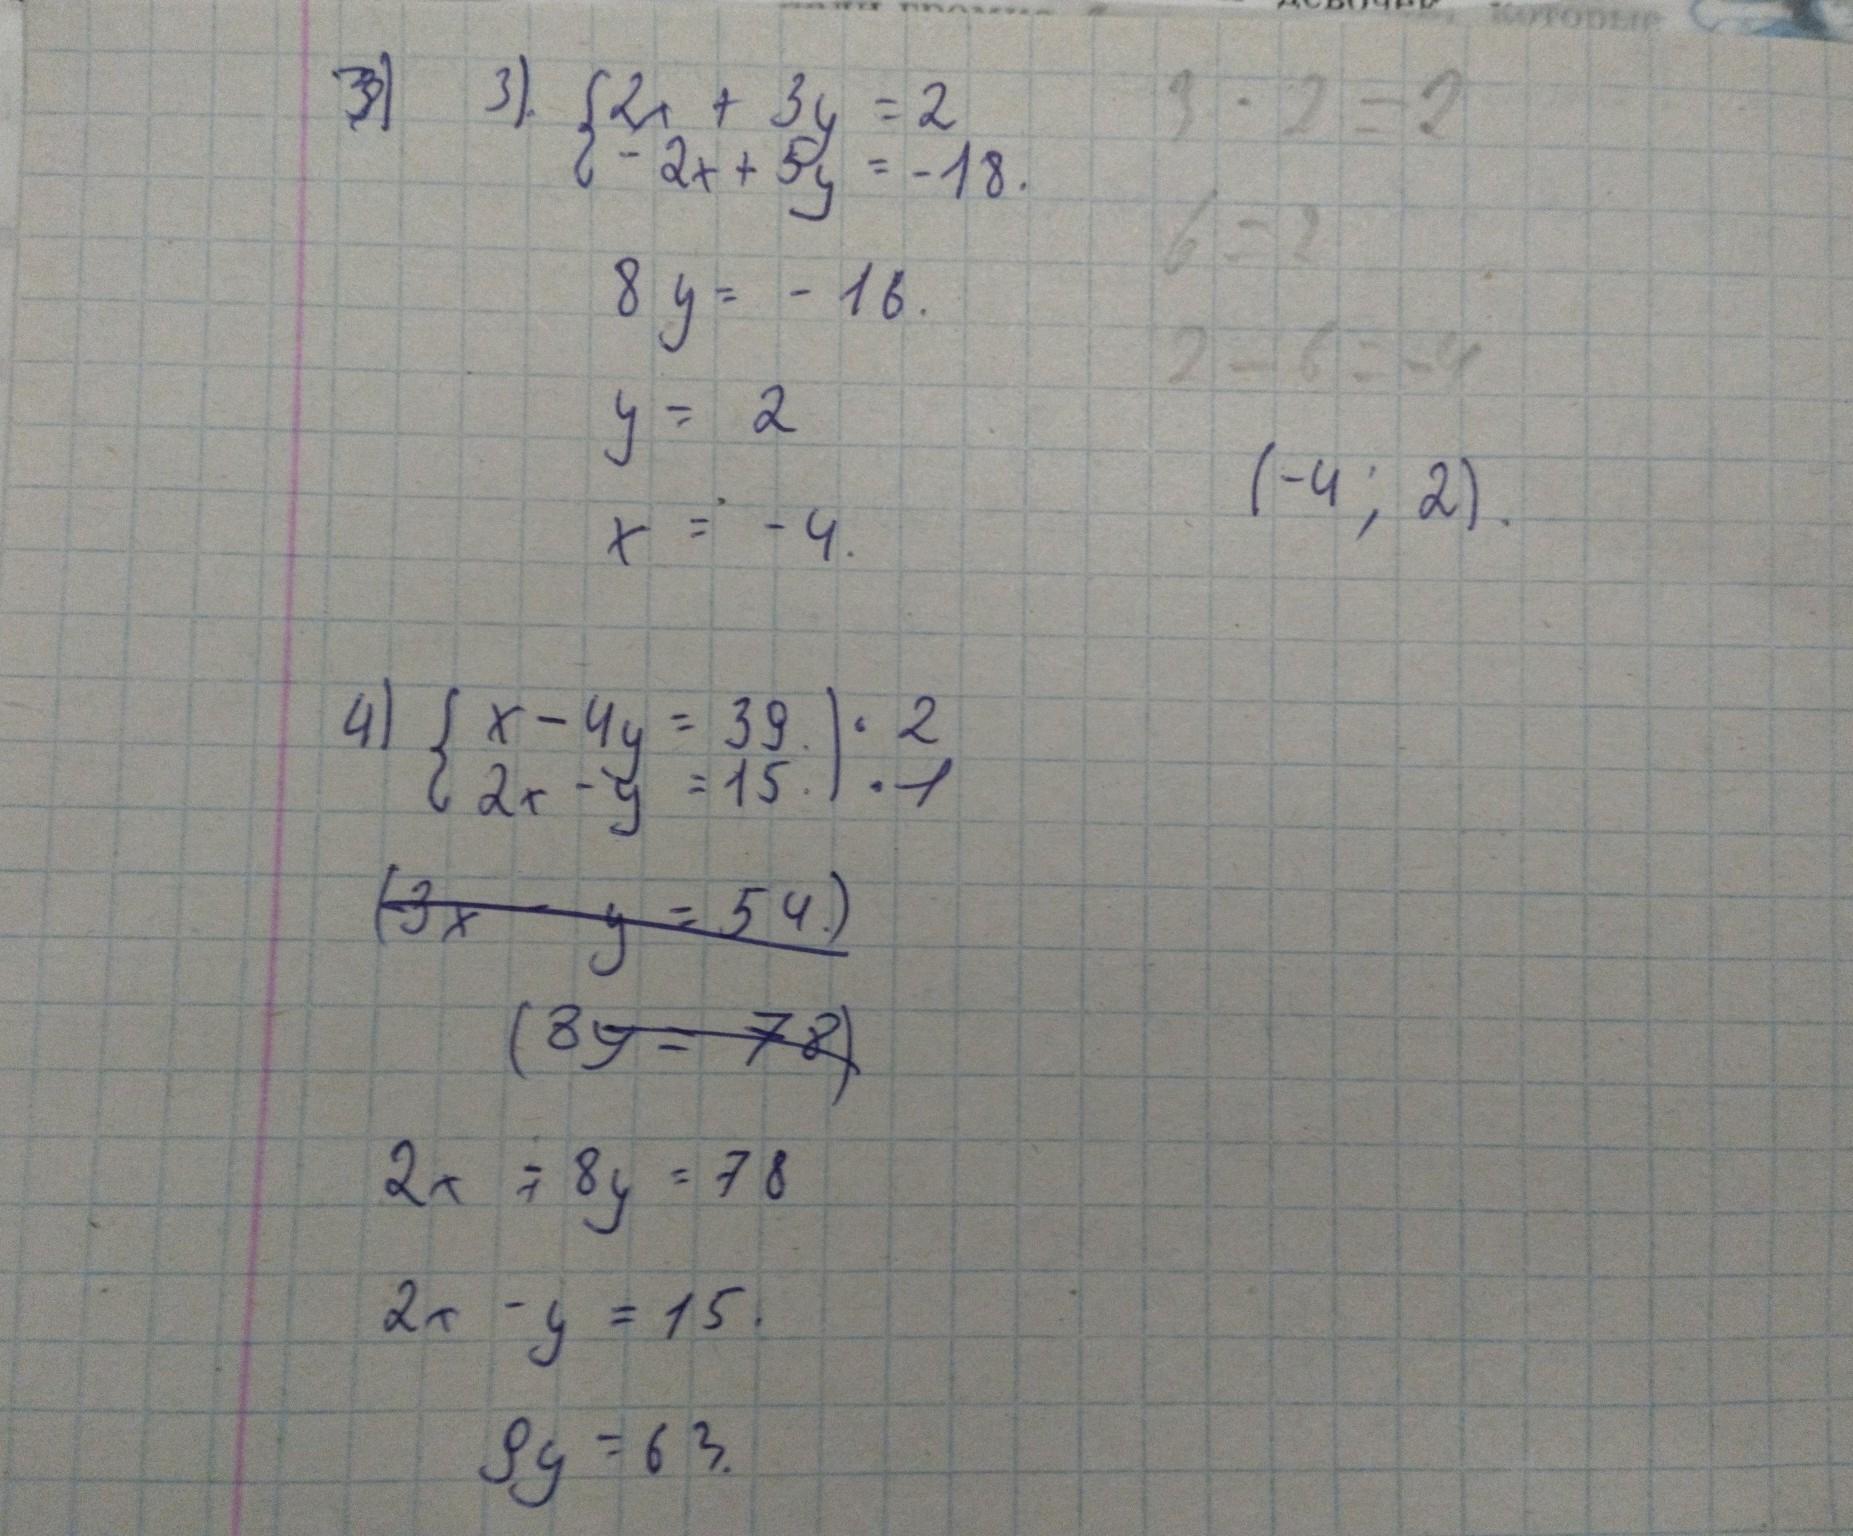 девочек, которые
3) 3). { 2x + 3y = 2
- 2x + 5y = -18.
8y = - 16.
y = 2
x = -4.
3 · 2 = 2
6 = 2
2 - 6 = -4
(-4; 2).
4) { x - 4y = 39. ) · 2
2x - y = 15. ) · -1
(3x - y = 54.)
(8y = 78)
2x - 8y = 78
2x - y = 15.
9y = 63.